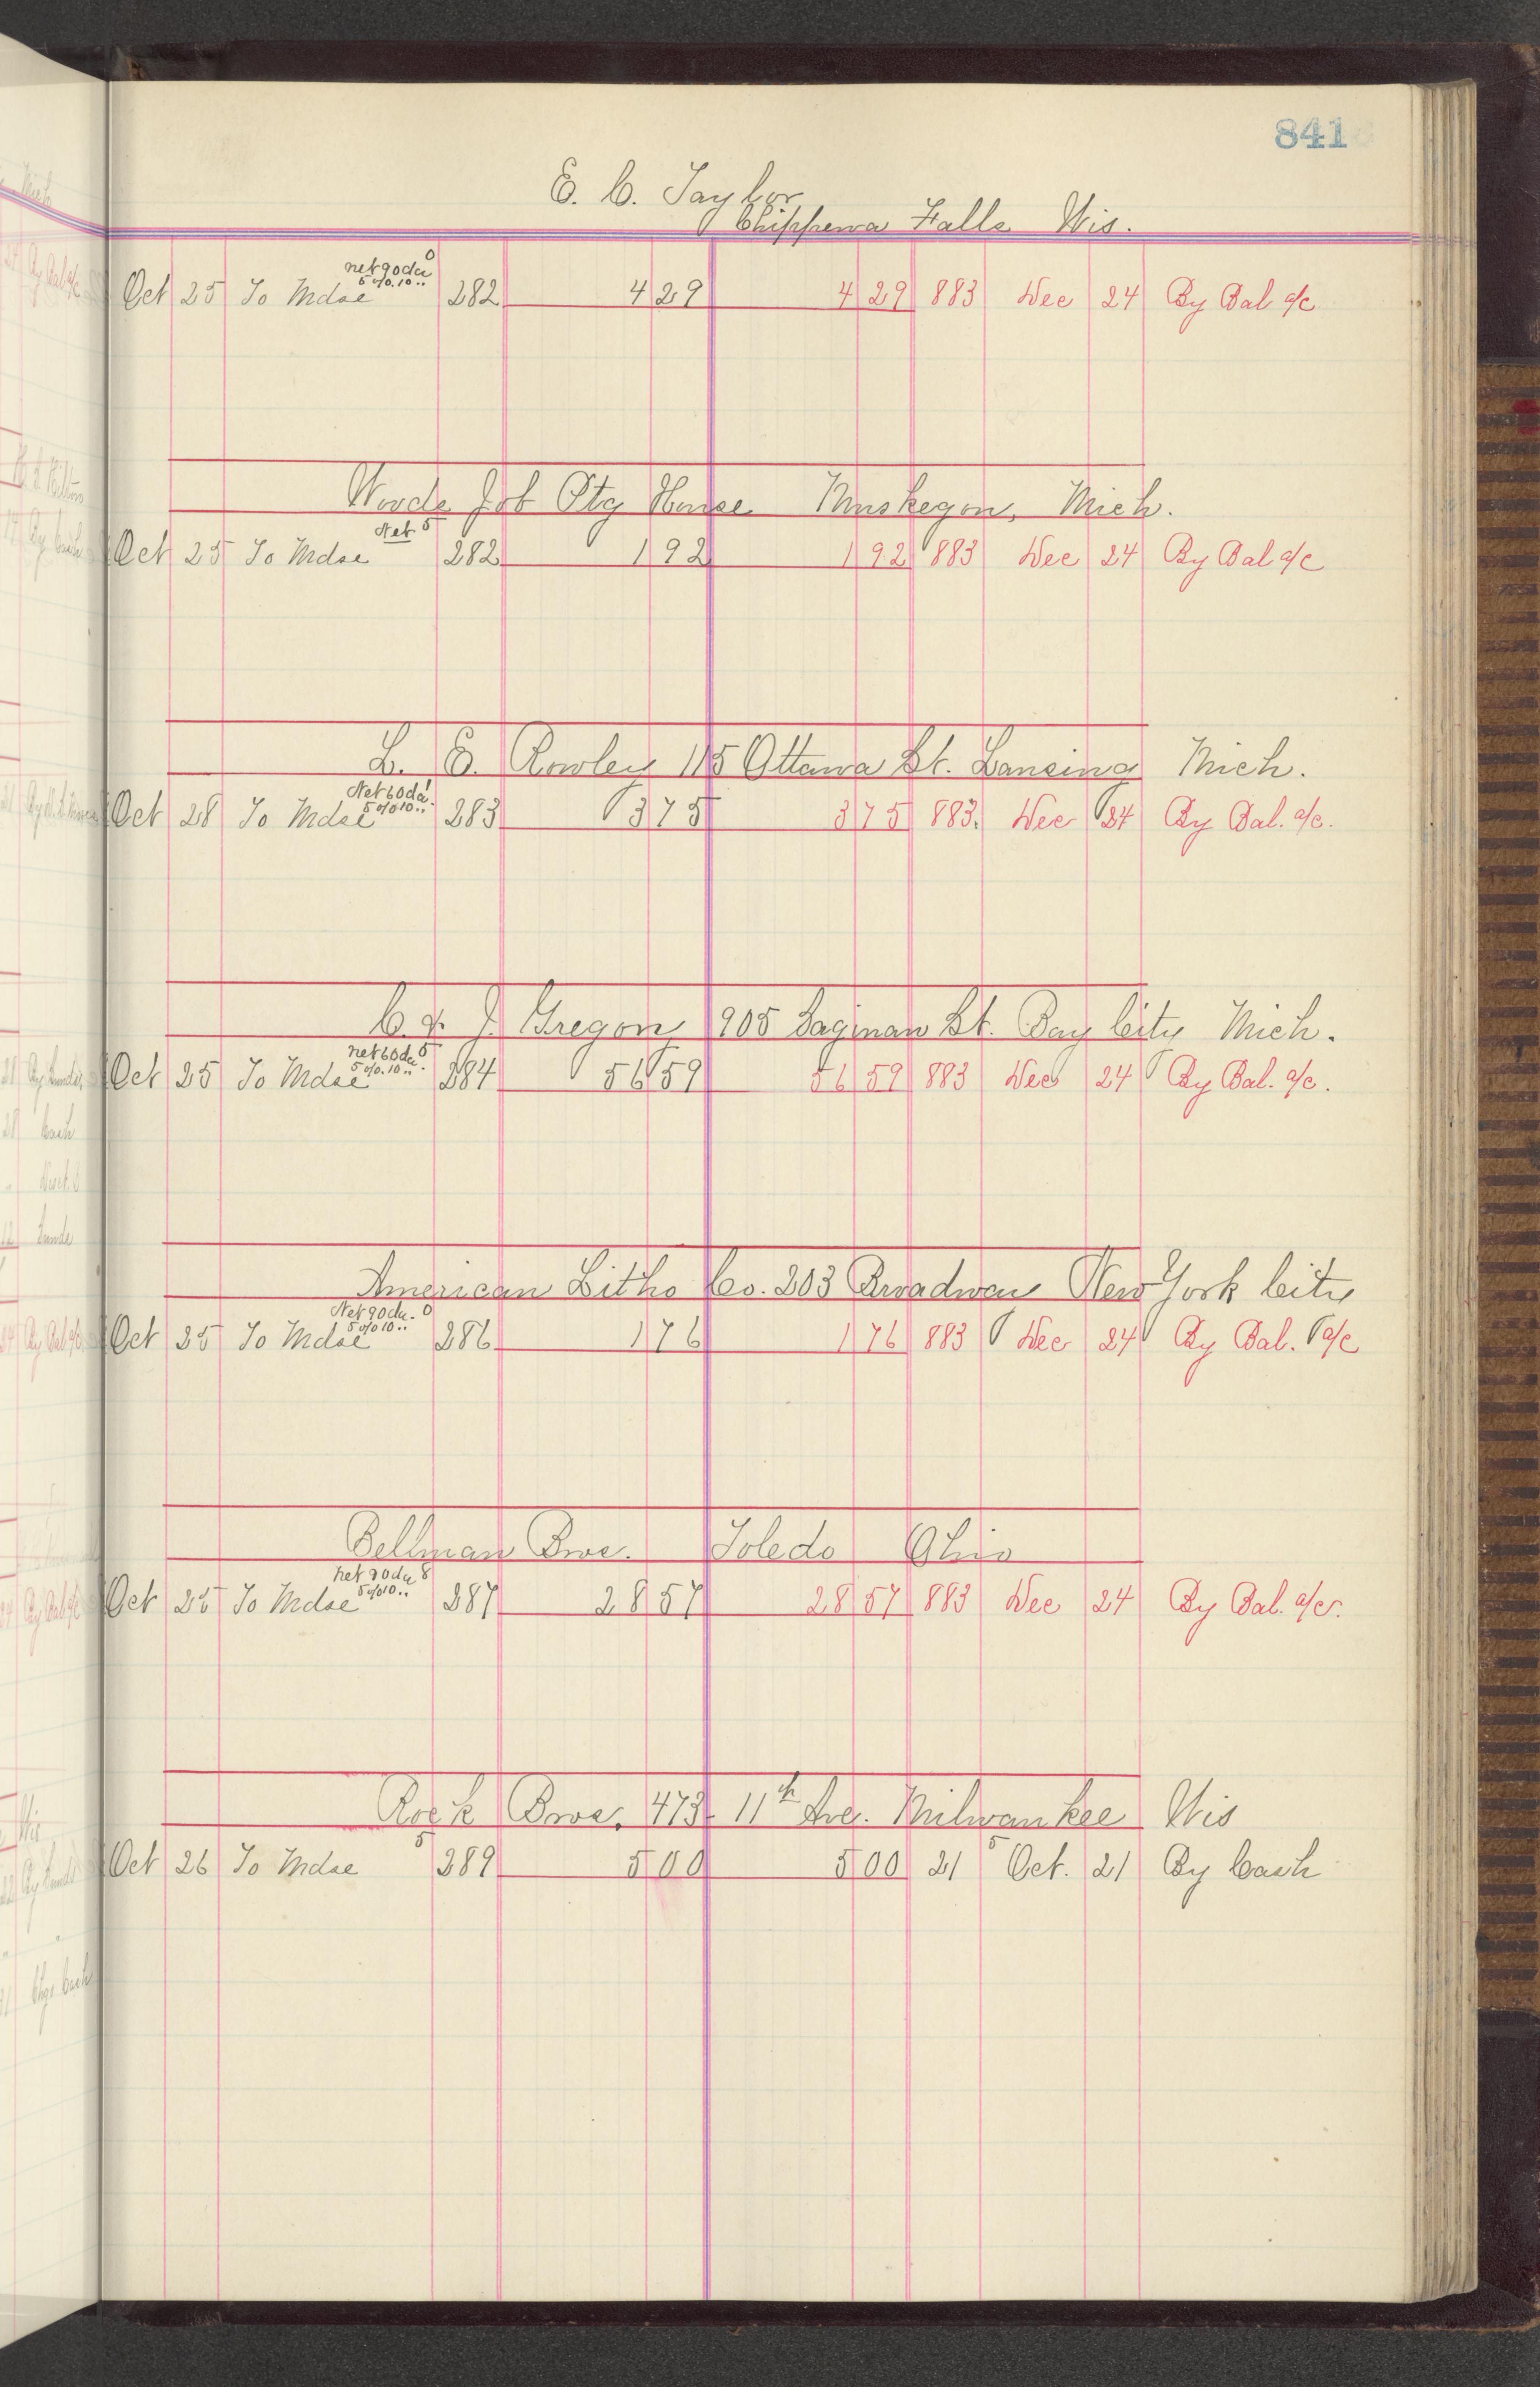 841
E. C. Taylor
Chippewa Falls Wis.
net 90 da 0
5 % 10 ..
Oct 25 To Mdse 282 4 29 4 29 883 Dec 24 By Bal a/c
Woods Job Ptg House Muskegon, Mich.
Net 5
Oct 25 To Mdse 282 1 92 1 92 883 Dec 24 By Bal a/c
L. E. Rowley 115 Ottawa St. Lansing Mich.
Net 60 da 1
5 % 10 ..
Oct 28 To Mdse 283 3 75 3 75 883. Dec 24 By Bal. a/c.
C. & J. Gregory 905 Saginaw St. Bay City Mich.
net 60 da 5
5 % 10 ..
Oct 25 To Mdse 284 56 59 56 59 883 Dec 24 By Bal. a/c.
American Litho Co. 203 Broadway New York City
Net 90 da. 0
5 % 10 ..
Oct 25 To Mdse 286 1 76 1 76 883 Dec 24 By Bal. a/c
Bellman Bros. Toledo Ohio
net 90 da 8
5 % 10 ..
Oct 25 To Mdse 287 28 57 28 57 883 Dec 24 By Bal. a/c.
Rock Bros. 473- 11th Ave. Milwaukee Wis
Oct 26 To Mdse 5 289 5 00 5 00 21 5 Oct. 21 By Cash